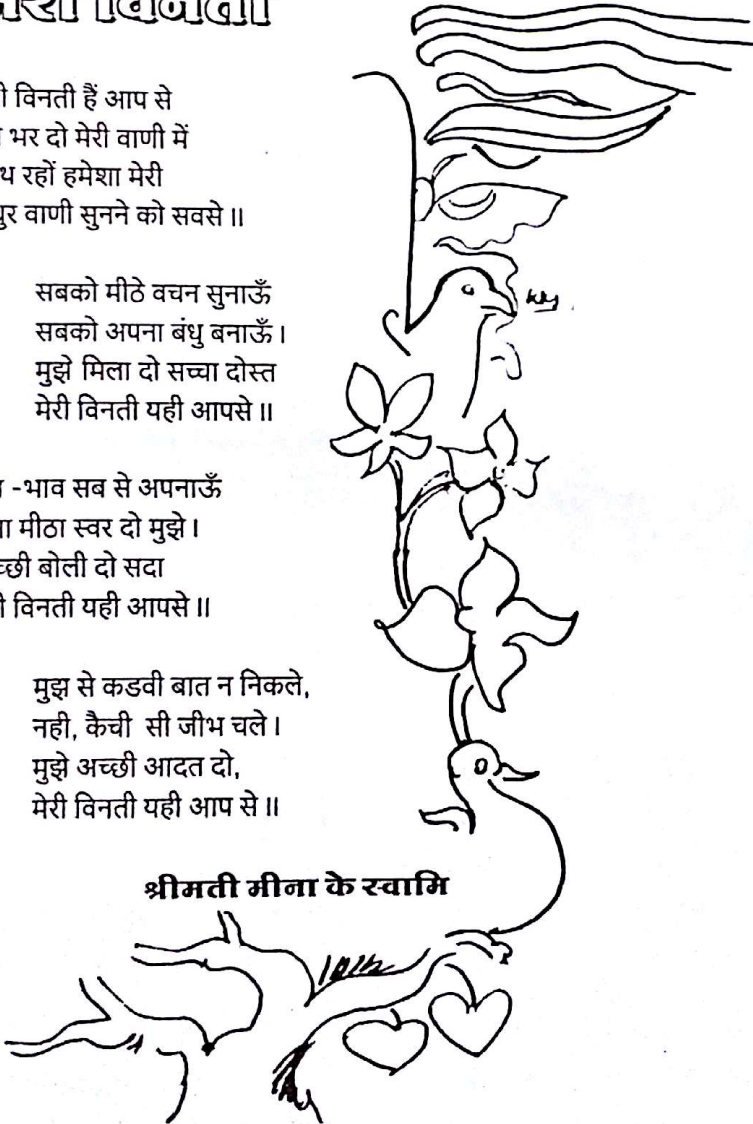 विनती
विनती हैं आप से
भर दो मेरी वाणी में
रहों हमेशा मेरी
वाणी सुनने को सवसे ॥
सबको मीठे वचन सुनाऊँ
सबको अपना बंधु बनाऊँ ।
मुझे मिला दो सच्चा दोस्त
मेरी विनती यही आपसे ॥
-भाव सब से अपनाऊँ
मीठा स्वर दो मुझे ।
बोली दो सदा
विनती यही आपसे ॥
मुझ से कडवी बात न निकले,
नही, कैची सी जीभ चले ।
मुझे अच्छी आदत दो,
मेरी विनती यही आप से ॥
श्रीमती मीना के स्वामि